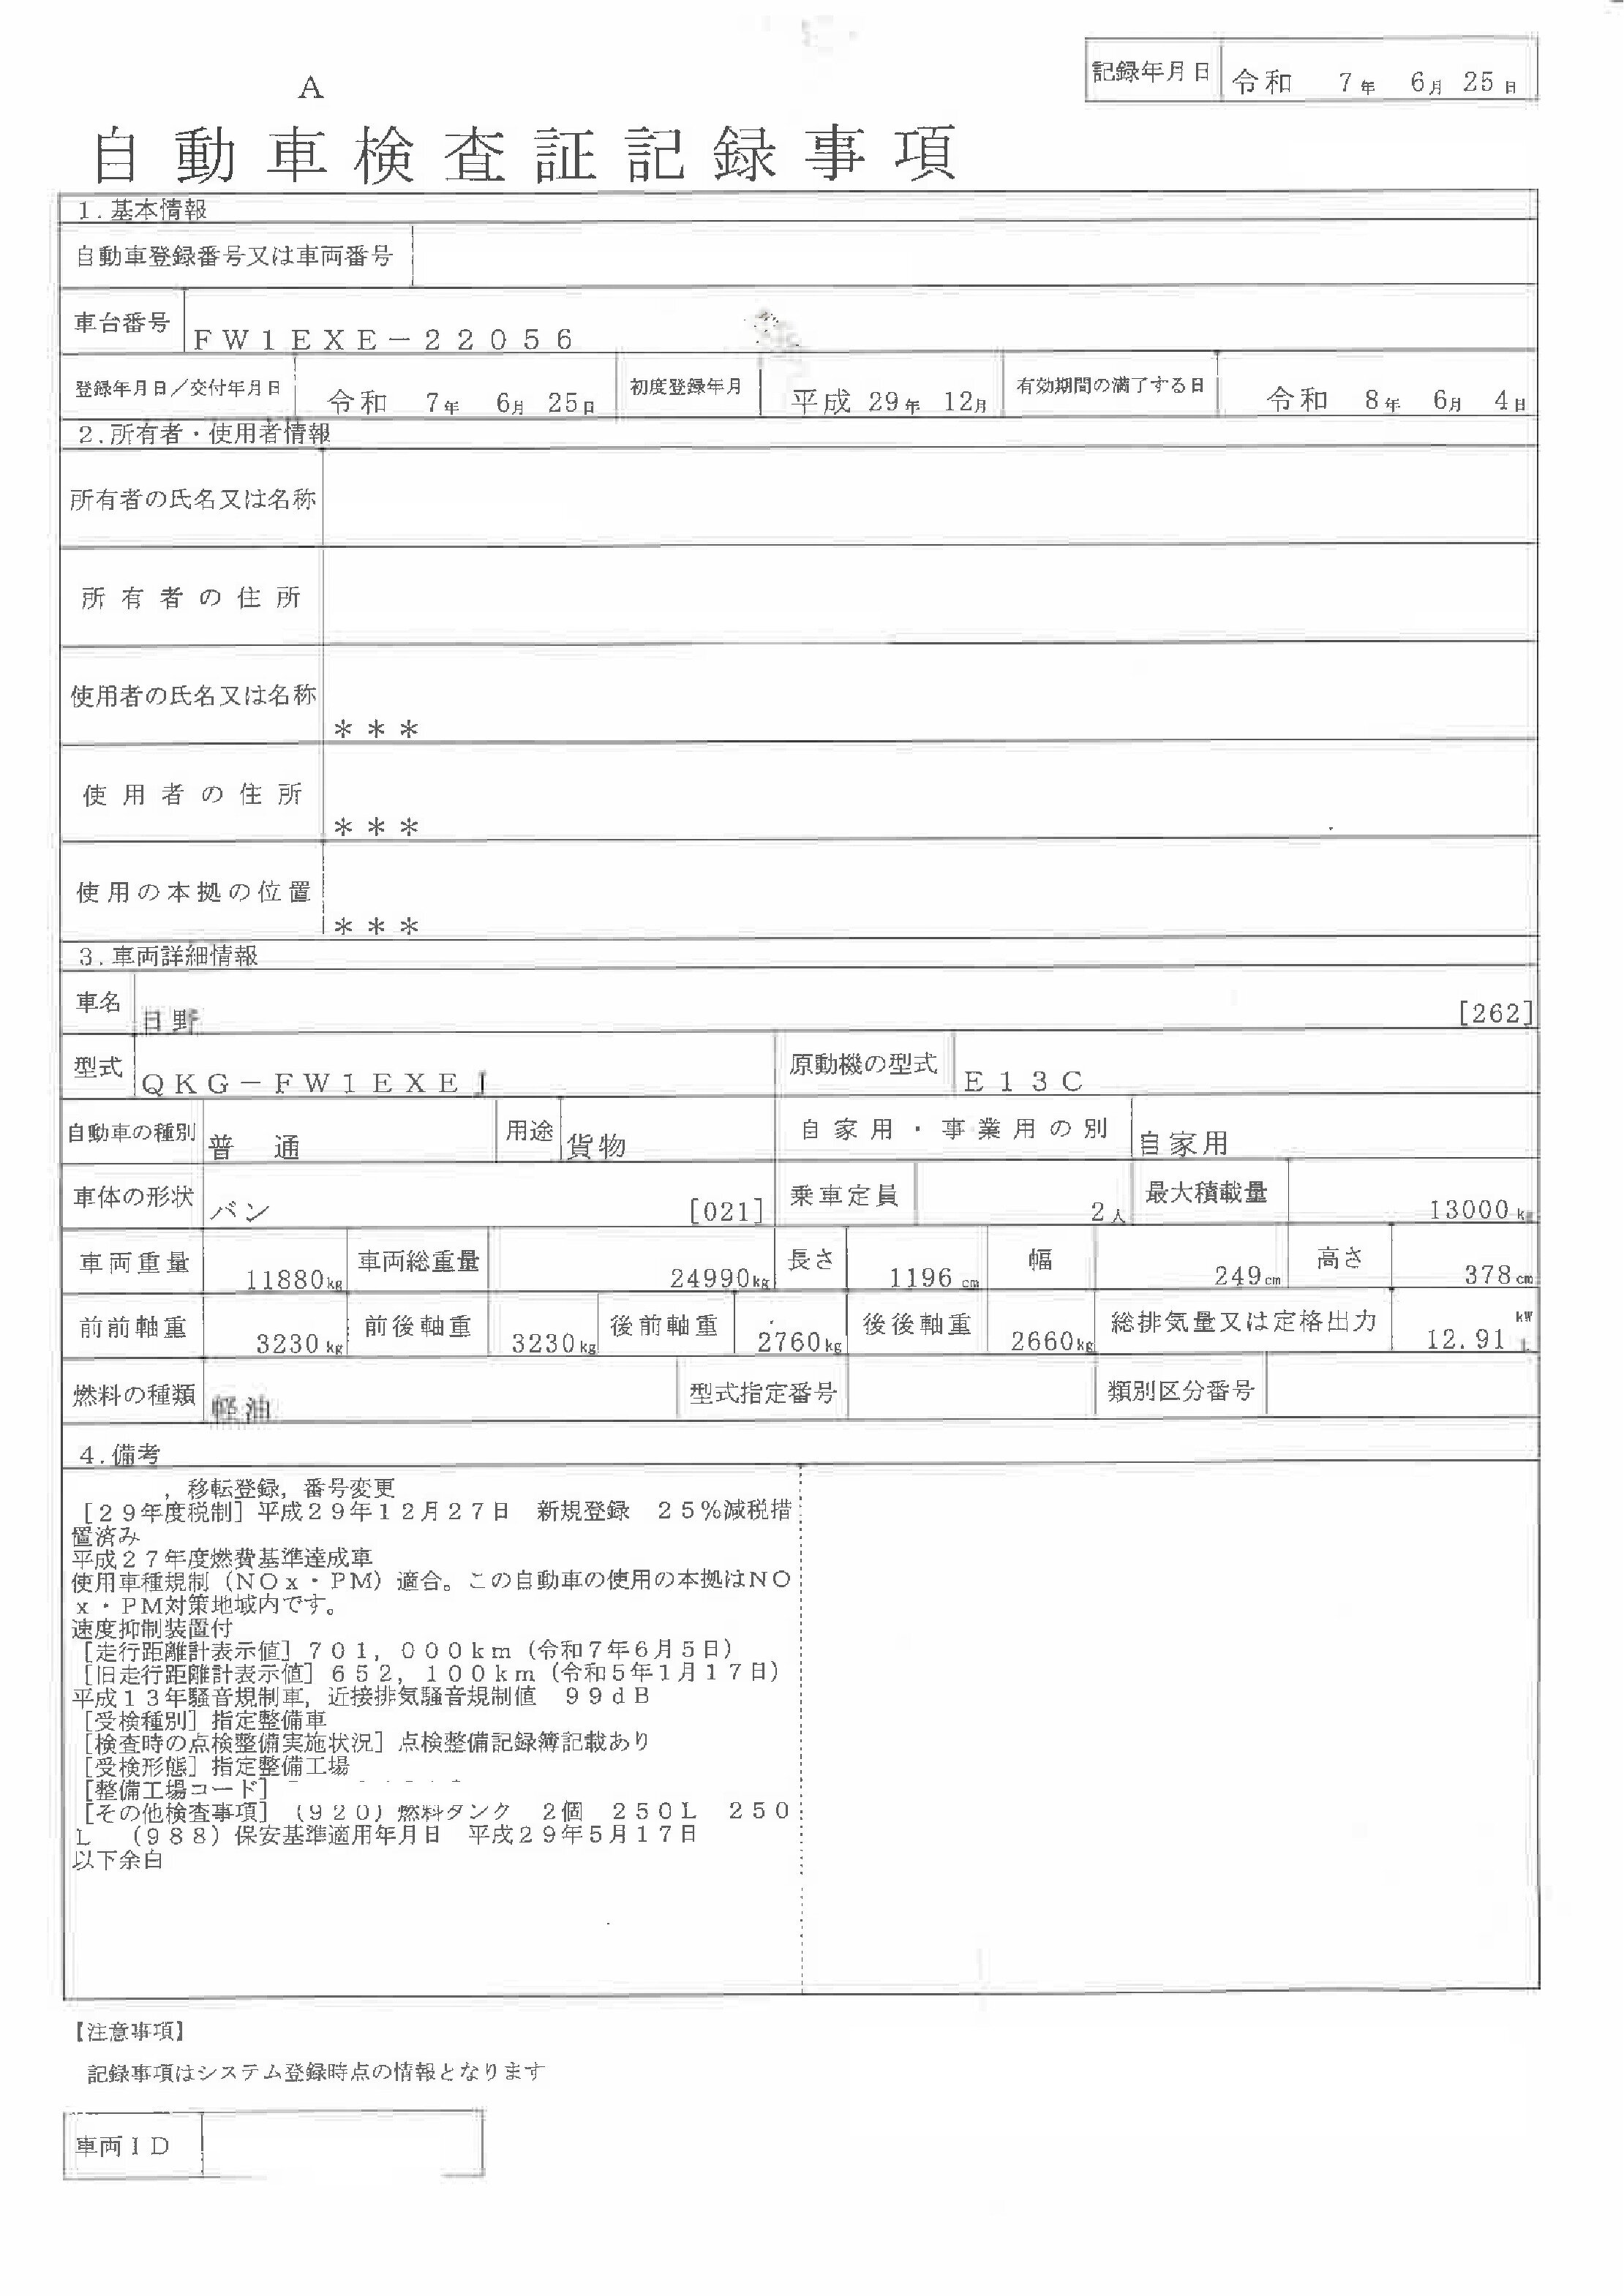 記録年月日 令和 7年 6月 25日
A
自動車検査証記録事項
1.基本情報
自動車登録番号又は車両番号
車台番号 FW1EXE－22056
登録年月日／交付年月日 令和 7年 6月 25日 初度登録年月 平成 29年 12月 有効期間の満了する日 令和 8年 6月 4日
2.所有者・使用者情報
所有者の氏名又は名称
所有者の住所
使用者の氏名又は名称 ＊＊＊
使用者の住所 ＊＊＊
使用の本拠の位置 ＊＊＊
3.車両詳細情報
車名 日野 [262]
型式 QKG－FW1EXEJ 原動機の型式 E13C
自動車の種別 普 通 用途 貨物 自家用・事業用の別 自家用
車体の形状 バン [021] 乗車定員 2人 最大積載量 13000kg
車両重量 11880kg 車両総重量 24990kg 長さ 1196cm 幅 249cm 高さ 378cm
前前軸重 3230kg 前後軸重 3230kg 後前軸重 2760kg 後後軸重 2660kg 総排気量又は定格出力 kW 12.91 L
燃料の種類 軽油 型式指定番号 類別区分番号
4.備考
，移転登録，番号変更
［２９年度税制］平成２９年１２月２７日 新規登録 ２５％減税措
置済み
平成２７年度燃費基準達成車
使用車種規制（ＮＯｘ・ＰＭ）適合。この自動車の使用の本拠はＮＯ
ｘ・ＰＭ対策地域内です。
速度抑制装置付
［走行距離計表示値］７０１，０００ｋｍ（令和７年６月５日）
［旧走行距離計表示値］６５２，１００ｋｍ（令和５年１月１７日）
平成１３年騒音規制車，近接排気騒音規制値 ９９ｄＢ
［受検種別］指定整備車
［検査時の点検整備実施状況］点検整備記録簿記載あり
［受検形態］指定整備工場
［整備工場コード］
［その他検査事項］（９２０）燃料タンク ２個 ２５０Ｌ ２５０
Ｌ （９８８）保安基準適用年月日 平成２９年５月１７日
以下余白
【注意事項】
記録事項はシステム登録時点の情報となります
車両ＩＤ